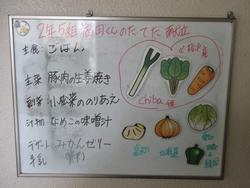 2年5組 富田くんのたてた献立
主食 ごはん
主菜 豚肉の生姜焼き
副菜 小松菜ののりあえ
汁物 なめこの味噌汁
デザート みかんゼリー
牛乳
chiba産